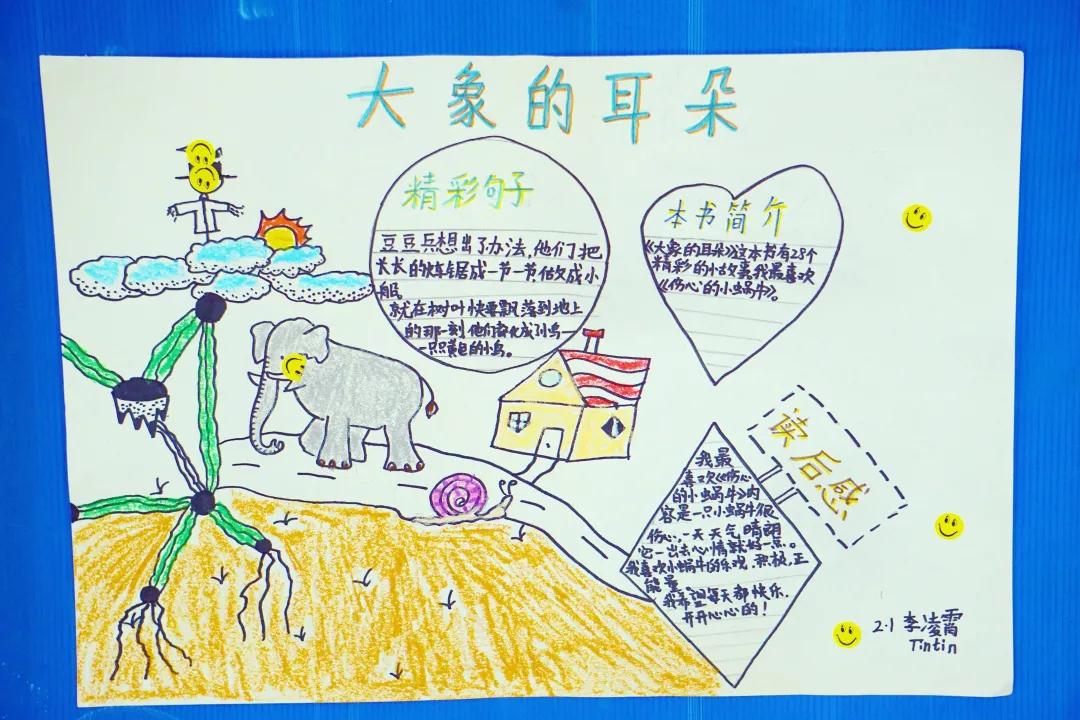 大象的耳朵
精彩句子
豆豆兵想出了办法,他们把
长长的炼锯成一节一节,做成小
船。
就在树叶快要飘落到地上
的那一刻他们都化成了小鸟一
一只只黄色的小鸟。
本书简介
《大象的耳朵》这本书有28个
精彩的小故事,我最喜欢
《伤心的小蜗牛》。
读后感
我最
喜欢《伤心
的小蜗牛》内
容是一只小蜗牛很
伤心,一天天气晴朗
它一出去心情就好一点。
我喜欢小蜗牛的乐观,积极,正
能量
我希望每天都快乐,
开开心心的!
2.1 李凌霄
Tintin